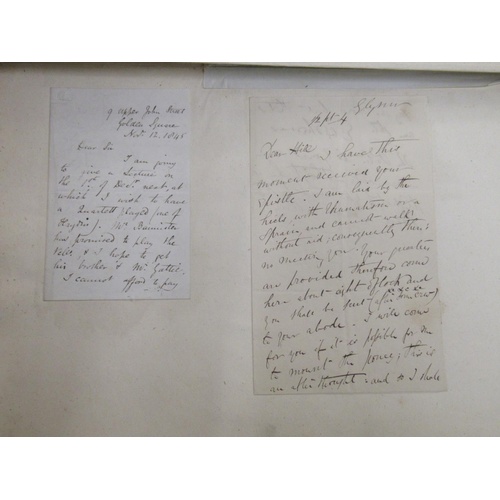 9 Upper John Street
Golden Square
Nov. 12. 1848
Dear Sir
I am going
to give a Lecture on
the 1st of Decr next, at
which I wish to have
a Quartett (played one of
Haydn's). Mr Bannister
has promised to play the
& I hope to get
his brother & Mr Gattie.
I cannot afford to pay
Sept 4 Glynn
Dear Hill I have this
moment received your
Epistle. I am laid by the
heels, with Rheumatism or a
Sprain, and cannot walk
without aid; consequently there is
no music for you - Your quarters
are provided therefore come
here about eight o'clock and
you shall be sent after
to your abode. I will come
for you if it is possible for me
to mount the poney; this is
an after thought - and I shall